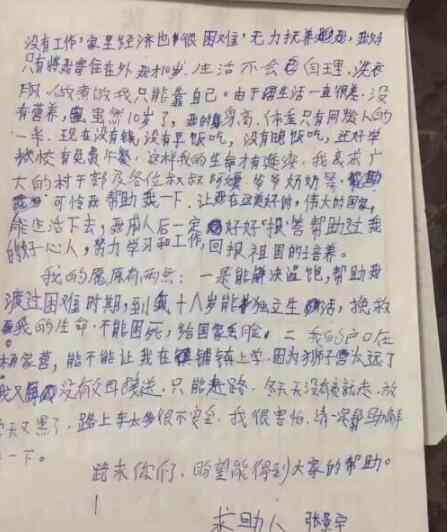 没有工作，家里经济也很困难，无力扶养我，我好
只有将我寄住在外，我才10岁，生活不会自理，洗衣
服，做煮饭我只能靠自己。由于生活一直很差，没
有营养，虽然10岁了，我的身高、体重只有同龄人的
一半。现在没有钱，没有早饭吃，没有晚饭吃，还好学
校有免费午餐，这样我的生命才有延续。我恳求广
大的村干部及各位叔叔阿姨爷爷奶奶等，
可怜我帮助我一下，让我在这美好的，伟大的国家，
能生活下去，我成人后一定好好报答帮助过我
的好心人，努力学习和工作，回报祖国的培养。
我的愿原有两点：一是能解决温饱，帮助我
渡过困难时期，到我十八岁能独立生活，挽救
我的生命，不能困死，给国家丢脸。二 我的户口在
家营，能不能让我在铺镇上学，因为狮子营太远了
我又没有父母接送，只能走路，冬天没亮就走，放
天又黑了，路上车太多很不安全，我很害怕，请一定帮助解
一下。
跪求你们，盼望能得到大家的帮助。
求助人 张